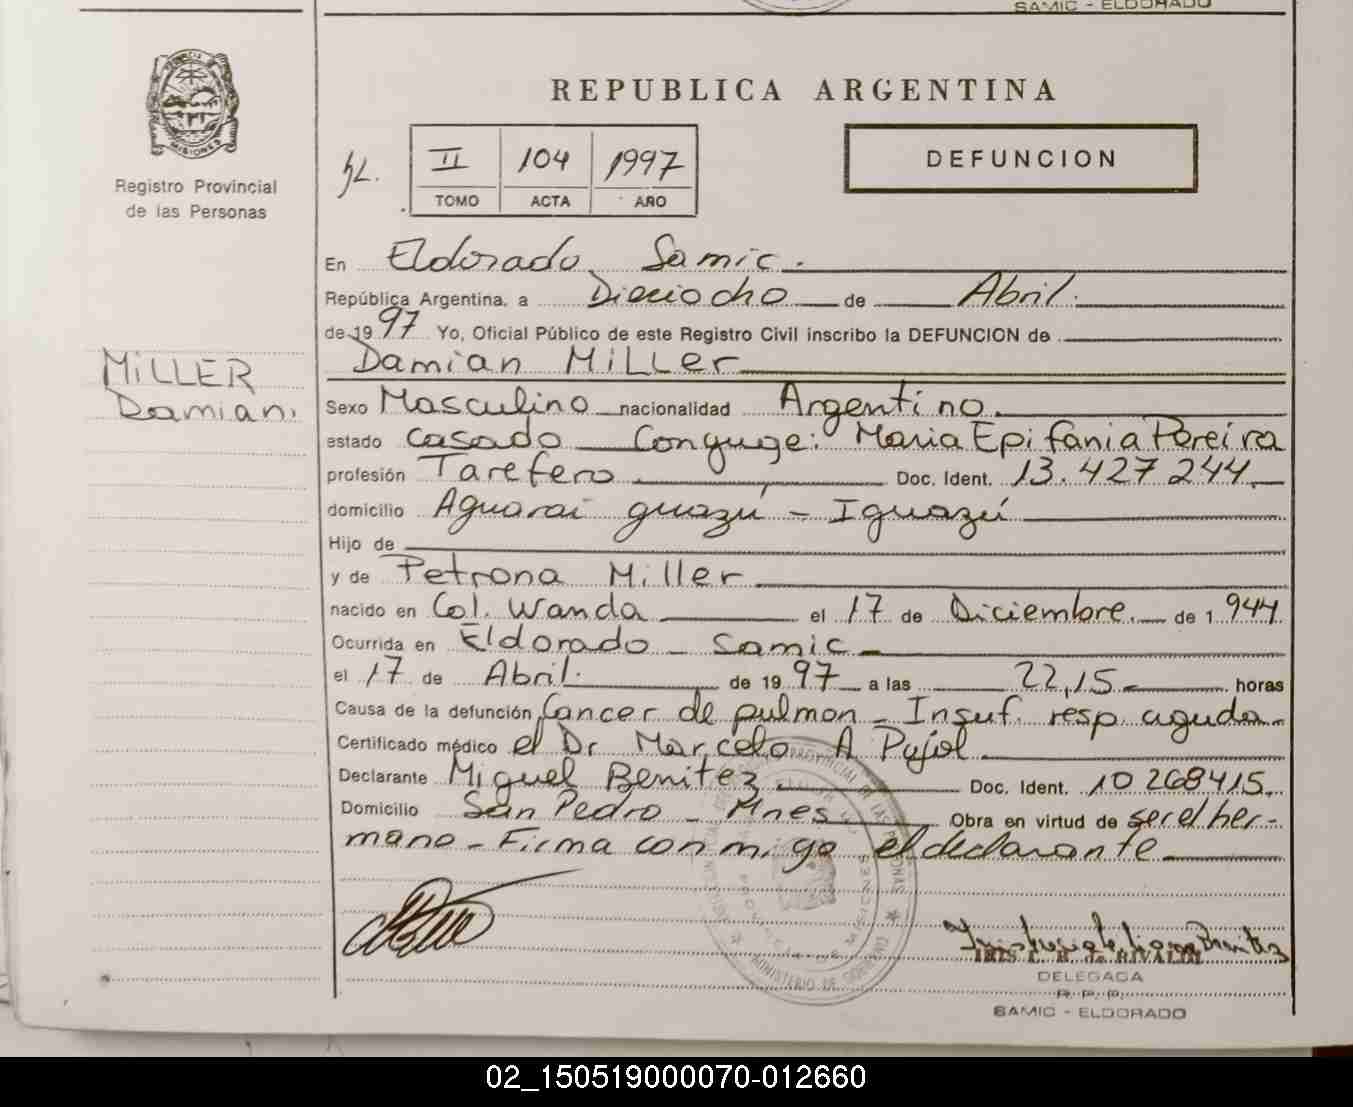 SAMIC - ELDORADO
PROVINCIA DE
MISIONES
Registro Provincial
de las Personas
REPUBLICA ARGENTINA
II 104 1997
TOMO ACTA AÑO
DEFUNCION
En Eldorado Samic.
República Argentina, a Dieciocho de Abril.
de 19 97 Yo, Oficial Público de este Registro Civil inscribo la DEFUNCION de
Damian Miller
MiLLER
Damian.
Sexo Masculino nacionalidad Argentino.
estado casado Conyuge: Maria Epifania Pereira
profesión Tarefero Doc. Ident. 13.427 244
domicilio Aguarai guazú - Iguazú
Hijo de
y de Petrona Miller
nacido en Col. Wanda el 17 de Diciembre. de 1 944
Ocurrida en Eldorado - Samic
el 17 de Abril. de 19 97 a las 22,15 horas
Causa de la defunción Cancer de pulmon - Insuf. resp aguda
Certificado médico el Dr Marcelo A Pujol
Declarante Miguel Benitez Doc. Ident. 10 268415.
Domicilio San Pedro - Mnes Obra en virtud de ser el her-
mano - Firma conmigo el declarante
MINISTERIO DE GOBIERNO
DELEGADA
R. P. P.
SAMIC - ELDORADO
02_150519000070-012660